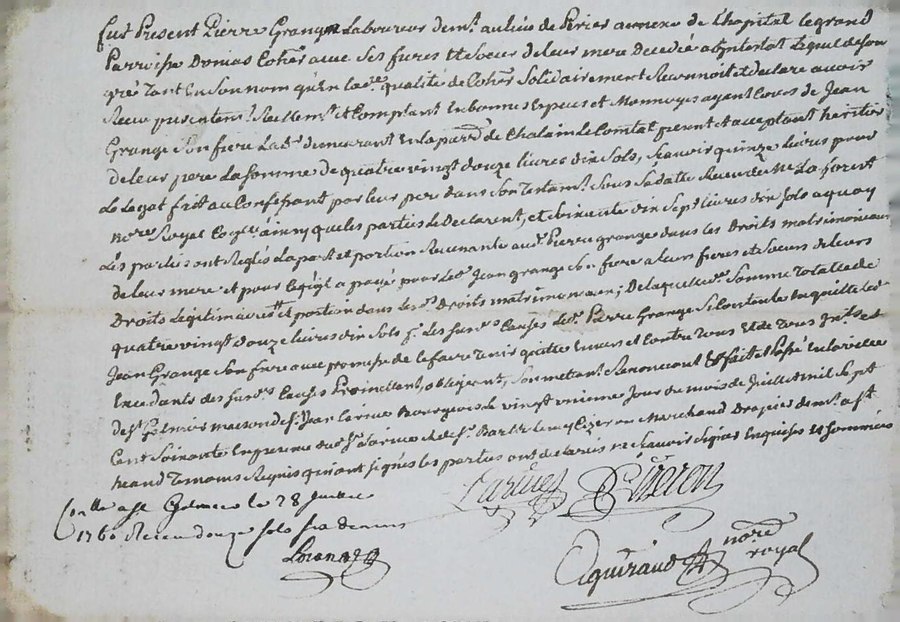 fut Present Pierre Grange Laboureur demt. au lieu de Peries annexe de Lhopital le grand
Parroisse Dunias Coher. avec ses freres et soeur de leur mere Decedée abjntestat Lequel de son
gré tant En son nom qu'en lad. qualité de Coher. Solidairement Reconnoit et declare avoir
Receu presentemt. Reellemt. et Comptant En bonnes Especes et Monnoyes ayant Cours de Jean
Grange son frere Labr. demeurant en la parr. de Chalain Le Comtal present et acceptant heritier
de leur pere La somme de quatre vingt douze livres dix sols, Scavoir quinze livres pour
Le Legat fait au Confessant par leur pere dans son Testamt. sous sa datte Receu de Me. La forest
nore. Royal ainsy que les parties le Declarent, et soixante dix sept livres dix sols a quoy
Les parties ont Reglés La part et portion Revenante aud. Pierre grange dans les Droits matrimoniaux
de leur mere et pour le payé par led. Jean grange son frere a leurs freres et soeurs de leurs
Droits Legitimaires et portion dans lesd. Droits matrimoniaux; De laquelle somme Totalle de
quatre vingt douze livres dix sols p. les susd. Causes led. Pierre Grange se Contente En quitte led.
Jean Grange son frere avec promesse de le faire tenir quitte Envers et Contre tous et de tous
des susd. Causes Promettant, obligeant, Soumettant Renoncant fait et Passé En la ville
de St. Galmier maison de Sr. Jean Larive Bourgeois Le vingt unieme Jour du mois de Juillet mil Sept
Cent Soixante En presence dud. Sr. Larive et de Sr. Barthelemy Cizeron Marchand Drapier demt. a St.
Rhand Temoins Requis qui ont signés les parties ont declarés ne Scavoir Signer Enquises et Sommées
Larive Cizeron
Conlle. a St. Galmier le 28 Juillet
1760 Receu douze sols six deniers
nore. royal